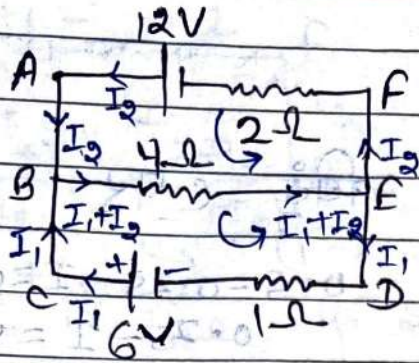 12V
A I₂ F
2Ω
I₂ 4Ω I₂
B E
I₁+I₂ I₁+I₂
I₁ I₁
+ −
C I₁ 6V 1Ω D